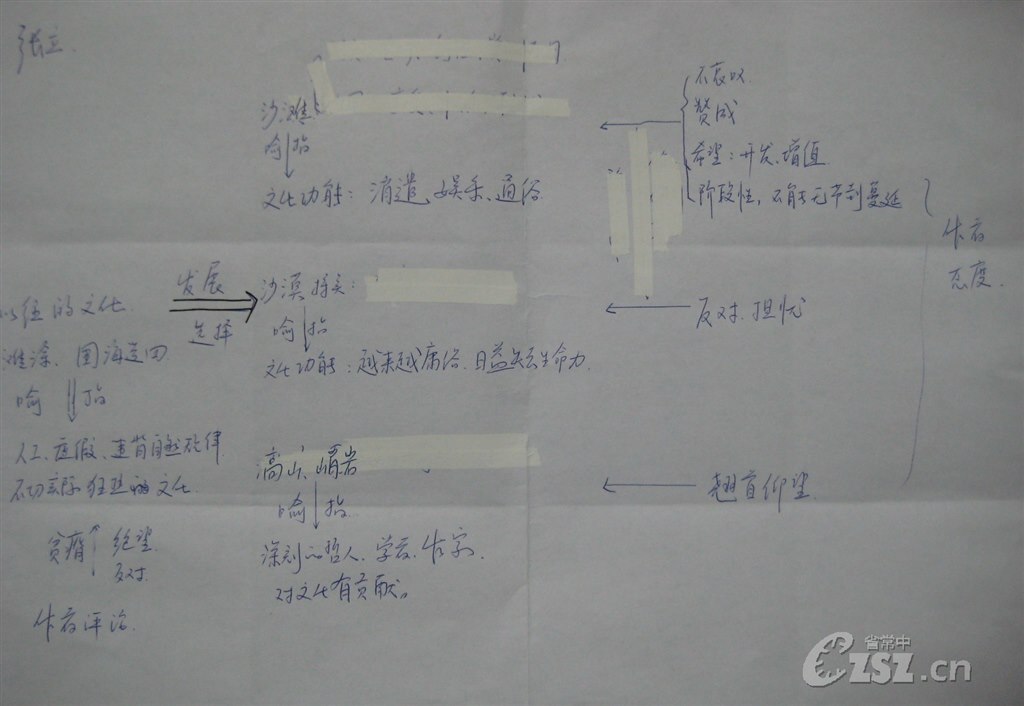 沙滩
喻 指
文化功能：消遣、娱乐、通俗
不 以
赞成
希望：开发、增值
阶段性，不能无节制蔓延
作者
态度
以往的文化
滩涂、围海造田
喻 指
人工、虚假、违背自然规律
不切实际狂热的文化
贫瘠 绝望
反对
作者评论
发展
选择
沙漠
喻 指
文化功能：越来越庸俗、日益失去生命力
反对、担忧
高山、
喻 指
深刻的哲人、学者、作家，
对文化有贡献。
翘首仰望
省常中
CZSZ.cn